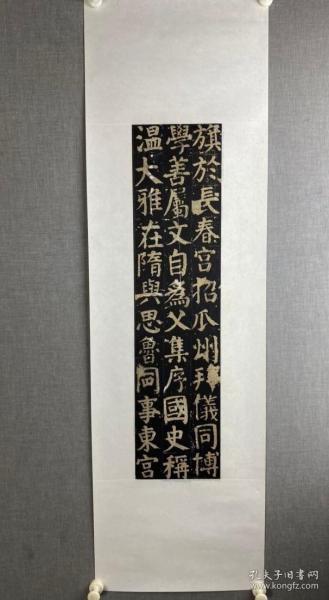 旗於長春宮招瓜州拜儀同博
學善屬文自為父集序國史稱
温大雅在隋與思魯同事東宮
孔夫子旧书网
www.kongfz.com